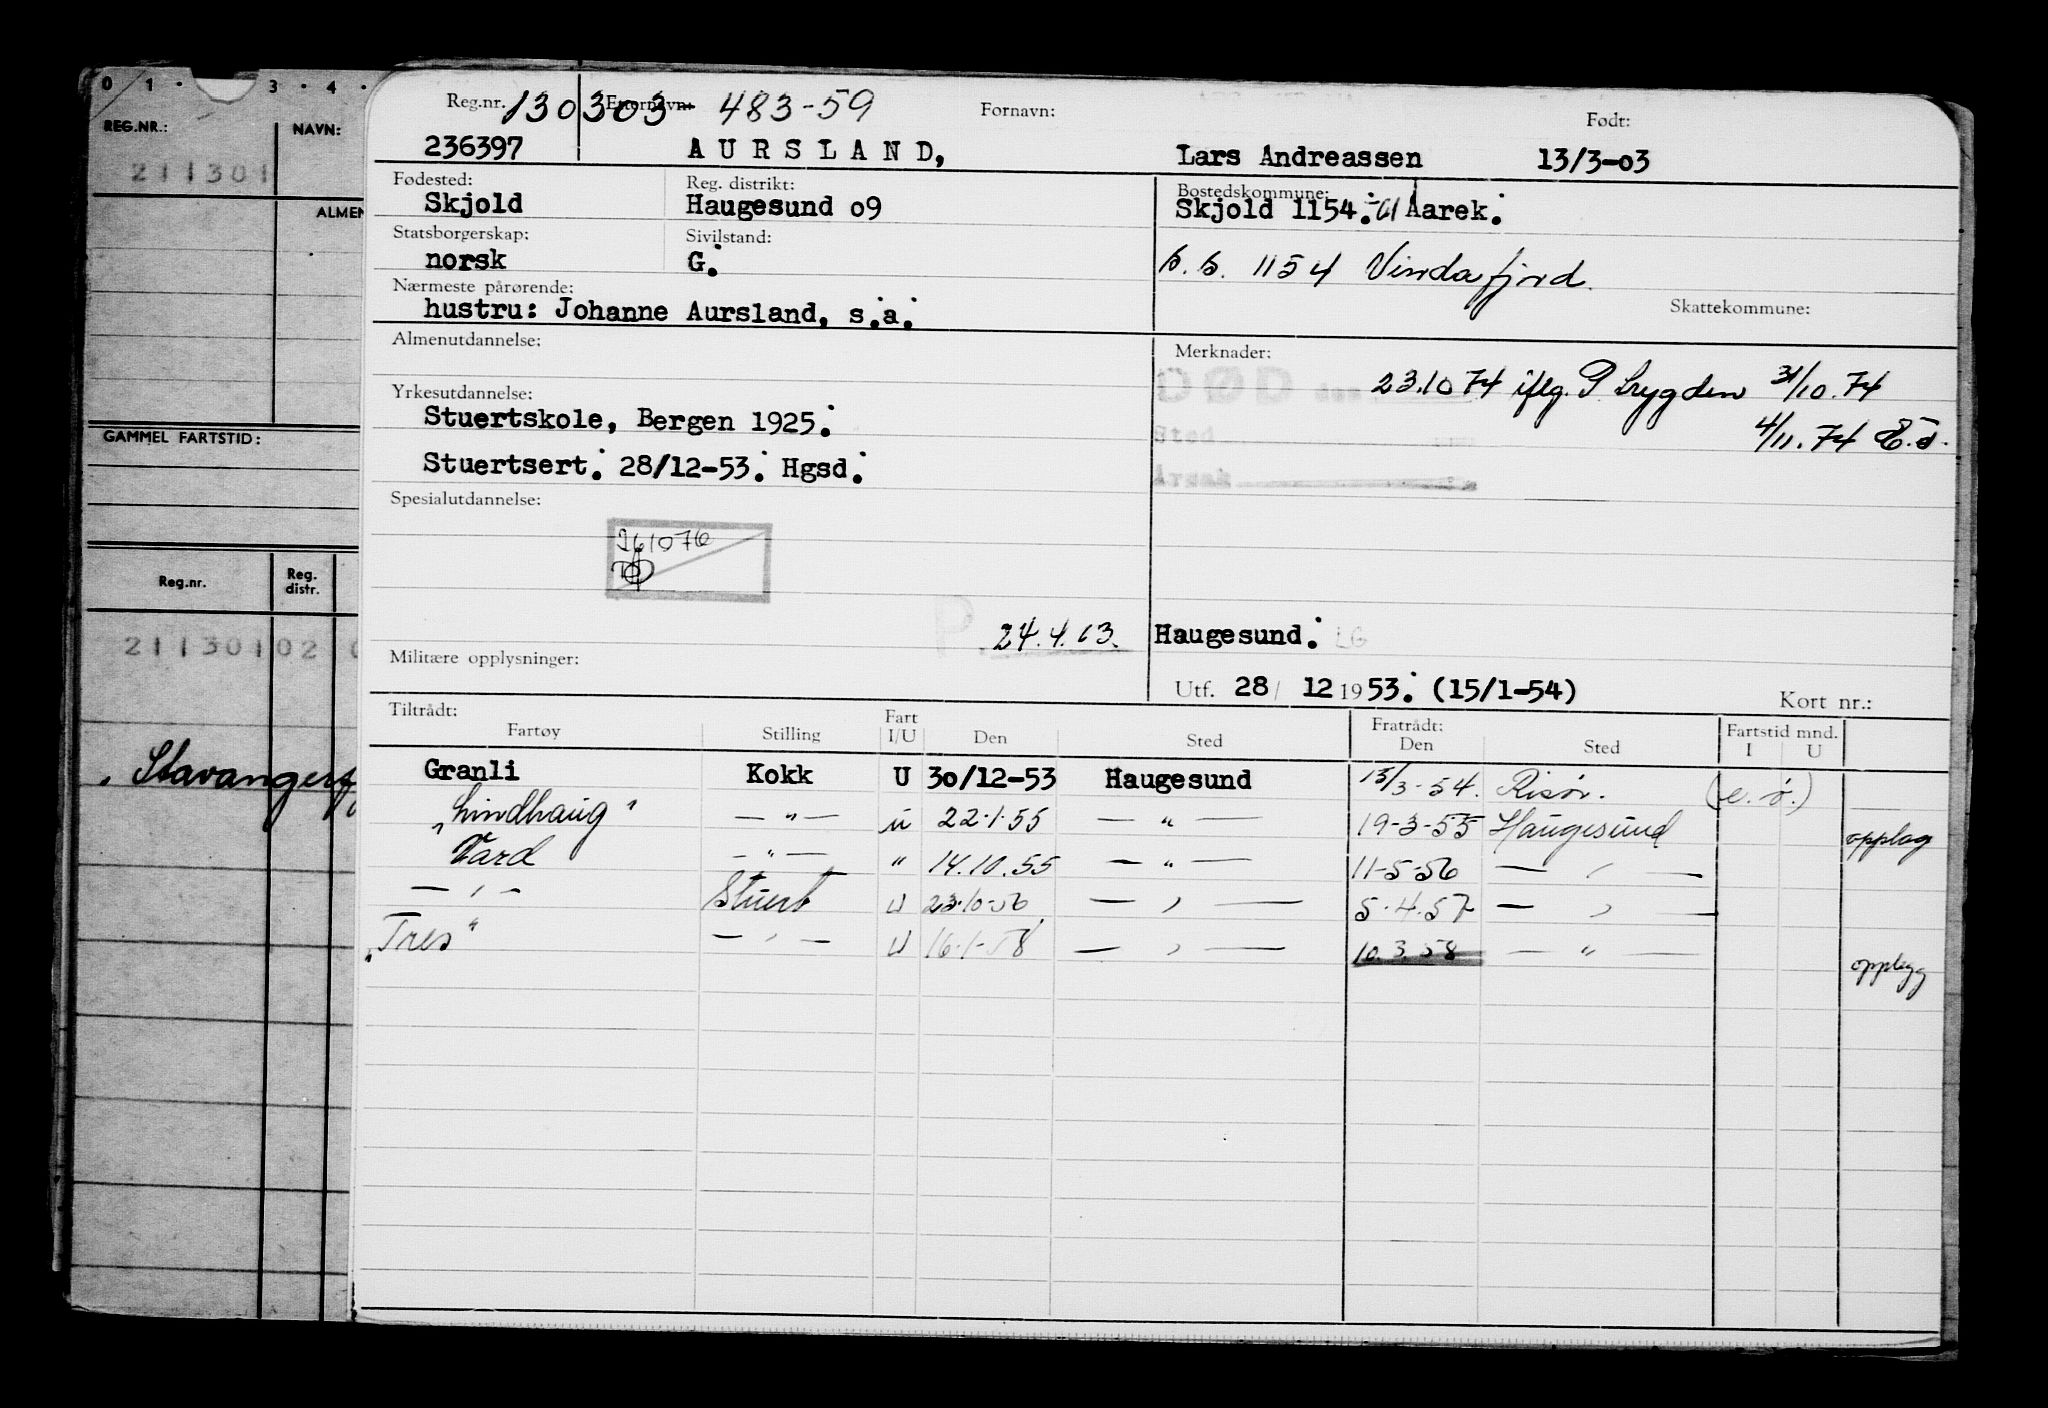 0 1 · 3 · 4 ·
REG.NR.: NAVN:
211301
ALMEN
GAMMEL FARTSTID:
Reg.nr. Reg. distr.
21130102
Stavangerf
Reg.nr. 130303 Etternavn: 483-59 Fornavn: Født:
236397 AURSLAND, Lars Andreassen 13/3-03
Fødested: Reg. distrikt: Bostedskommune:
Skjold Haugesund o9 Skjold 1154. Aarek.
Statsborgerskap: Sivilstand:
norsk G. b.b. 1154 Vindafjord.
Nærmeste pårørende: Skattekommune:
hustru: Johanne Aursland, s.a.
Almenutdannelse: Merknader:
DØD den 23.10 74 iflg. P. trygden 31/10.74
Yrkesutdannelse:
Stuertskole, Bergen 1925. Sted 4/11.74
Stuertsert. 28/12-53. Hgsd. Årsak
Spesialutdannelse:
261076
P. 24.4.63. Haugesund. LG
Militære opplysninger:
Utf. 28/ 12 1953. (15/1-54) Kort nr.:
Tiltrådt: Fratrådt: Fartstid mnd.
Fartøy Stilling Fart I/U Den Sted Den Sted I U
Granli Kokk U 30/12-53 Haugesund 15/3-54. Risør. (e.ø.)
"Lindhaug" — " — u 22.1.55 — " — 19-3-55 Haugesund opplag
Vard — " — " 14.10.55 — " — 11-5-56 — " —
— " — Stuert U 23.10-56 — " — 5.4.57 — " —
"Tres" — " — U 16.1.58 — " — 10.3.58 — " — opplegg